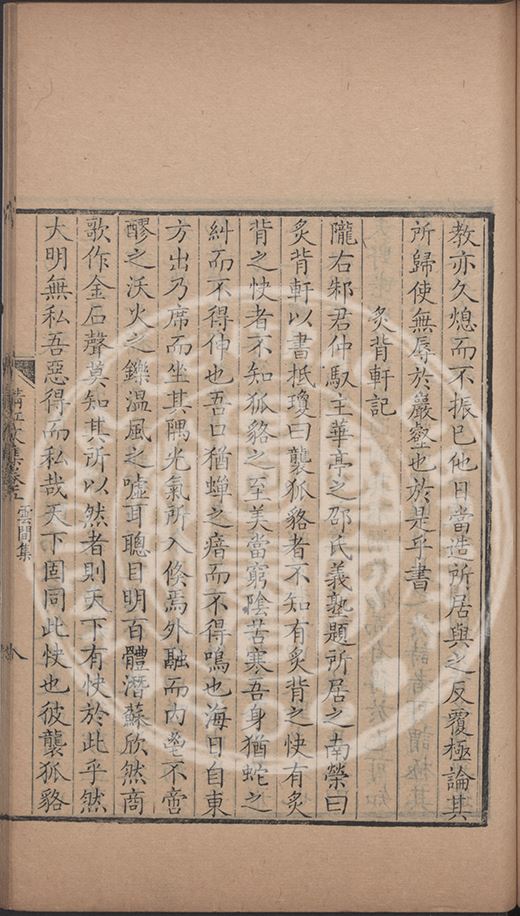 教亦久熄而不振已他日當造所居與之反覆極論其
所歸使無辱於巖壑也於是乎書
炙背軒記
隴右邾君仲馭主華亭之邵氏義塾題所居之南榮曰
炙背軒以書抵瓊曰襲狐貉者不知有炙背之快有炙
背之快者不知狐貉之至美當窮陰苦寒吾身猶蛇之
糾而不得伸也吾口猶蟬之瘖而不得鳴也海日自東
方出乃席而坐其隅光氣所入倏焉外融而內盎不啻
醪之沃火之鑠溫風之噓耳聰目明百體潛蘇欣然商
歌作金石聲莫知其所以然者則天下有快於此乎然
大明無私吾惡得而私哉天下固同此快也彼襲狐貉
清江文集卷五 雲間集 八